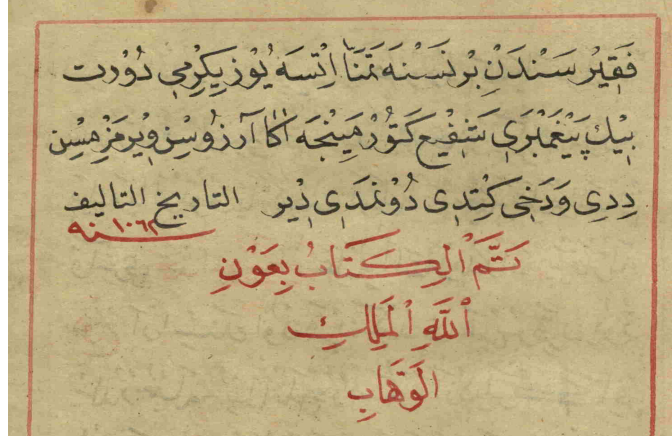 فَقِيرْ سَنْدَنْ بِرْ نَسْنَه تَمَنَّا اِتْسَه يُوزْ يِكِرْمِي دُورْت
بِيْكْ پَيْغَمْبَرِي شَفِيعْ كَتُورْمَيِنْجَه اَكَا آرْزُوسِنْ وِيرْمَزْمِسِنْ
دِدِي وَدَخِي كِتْدِي دُونْمَدِي دِيرْ التاريخ التاليف
سنه ١٠٦٨
تَمَّ الْكِتَابُ بِعَوْنِ
اللَّهِ الْمَلِكِ
الْوَهَّابِ